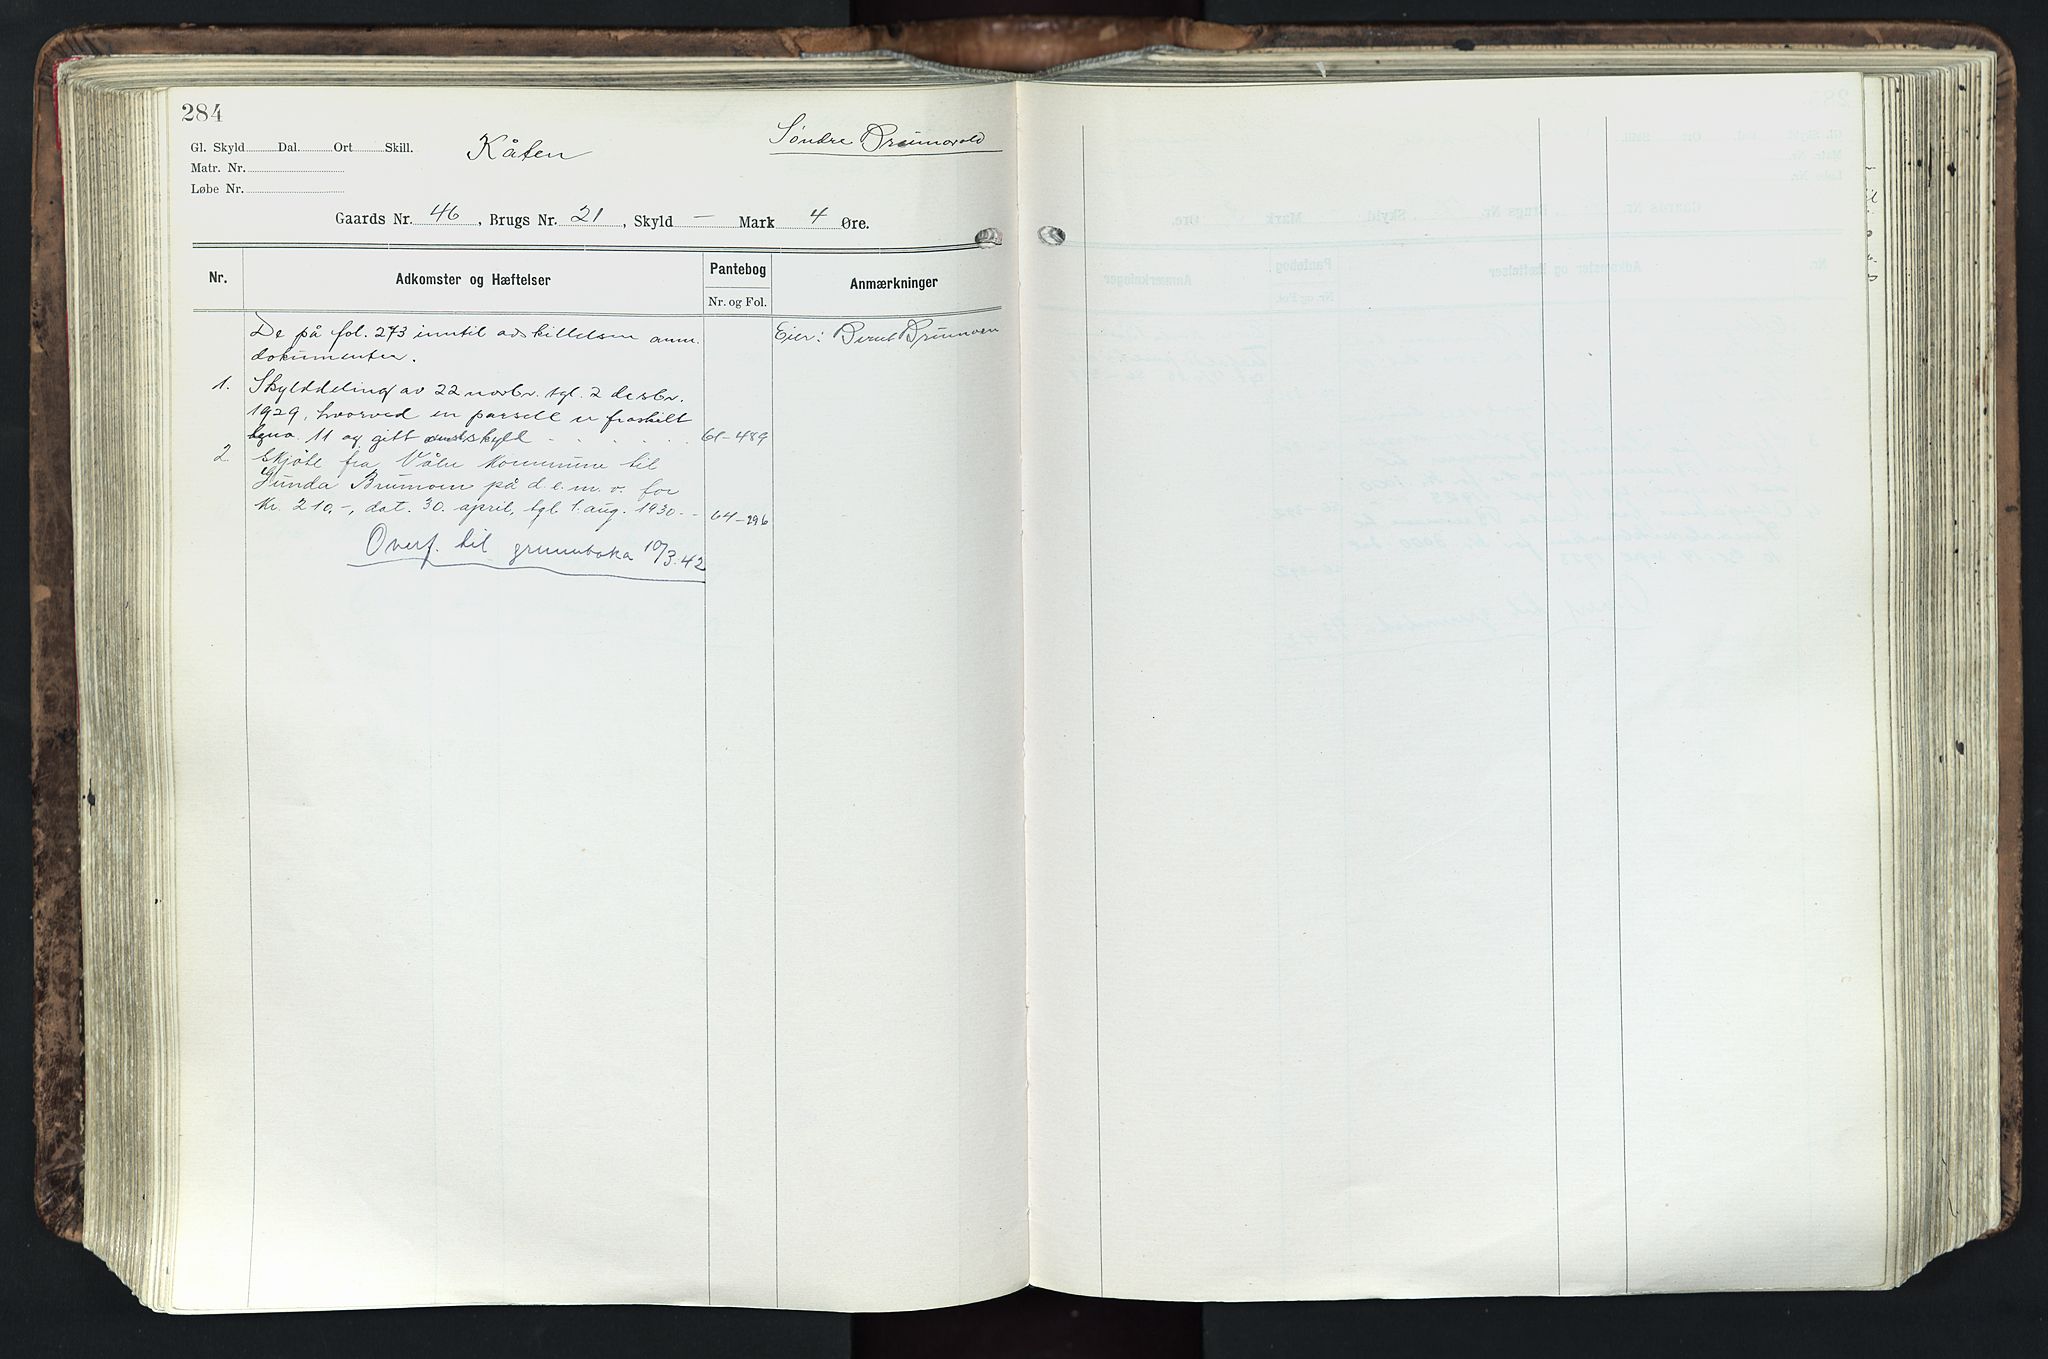 284
Gl. Skyld Dal. Ort Skill. Kåten Søndre Brumovold
Matr. Nr.
Løbe Nr.
Gaards Nr. 46, Brugs Nr. 21, Skyld — Mark 4 Øre.
Nr. Adkomster og Hæftelser Pantebog Anmærkninger
Nr. og Fol.
De på fol. 273 inntil adskillelsen anm. Eier: Bernt Brumoen
dokumenter.
1. Skylddeling av 22 novbr. tgl. 2 desbr.
1929, hvorved en parsell er fraskilt
11 og gitt skyld . . . . . 61-489
2. Skjöte fra Våler kommune til
Gunda Brumoen på d. e. m. v. for
kr. 210,-, dat. 30. april, tgl. 1. aug. 1930. - 64-296
Overf. til grunnboka 10/3.42